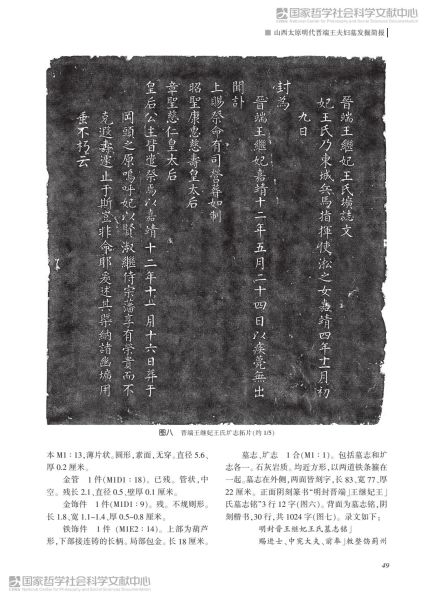 国家哲学社会科学文献中心
National Center for Philosophy and Social Sciences Documentation
■ 山西太原明代晋端王夫妇墓发掘简报
晉端王繼妃王氏壙誌文
妃王氏乃東城兵馬指揮使淞之女嘉靖四年十二月初
九日
封為
晉端王繼妃嘉靖十二年五月二十四日以疾薨無出
聞訃
上賜祭命有司營葬如制
昭聖康惠慈壽皇太后
章聖慈仁皇太后
皇后公主皆遣祭焉以嘉靖十二年十一月十六日葬于
岡頭之原嗚呼妃以賢淑繼侍宗藩享有榮貴而不
克遐壽遽止于斯豈非命耶爰述其槩納諸幽壙用
垂不朽云
图八 晋端王继妃王氏圹志拓片(约 1/5)
本 M1∶13,薄片状,圆形,素面,无穿。直径 5.6、
厚 0.2 厘米。
金管 1 件(M1D1∶18)。已残。管状,中
空。残长 2.1、直径 0.5、壁厚 0.1 厘米。
金饰件 1 件(M1D1∶9)。残。不规则形。
长 1.8、宽 1.1~1.4、厚 0.5~0.8 厘米。
铁饰件 1 件(M1E2∶14)。上部为葫芦
形,下部接连铸的长柄。局部包金。长 18 厘米。
墓志、圹志 1 合(M1∶1)。包括墓志和圹
志各一。石灰岩质。均近方形,以两道铁条箍在
一起。墓志在外侧,两面皆刻字,长 83、宽 77、厚
22 厘米。正面阴刻篆书“明封晋端」王继妃王」
氏墓志铭”3 行 12 字(图六)。背面为墓志铭,阴
刻楷书,30 行,共 1024 字(图七)。录文如下:
明封晋王继妃王氏墓志铭」
赐进士、中宪大夫、前奉」敕整饬蓟州
49
国家哲学社会科学文献中心
National Center for Philosophy and Social Sciences Documentation